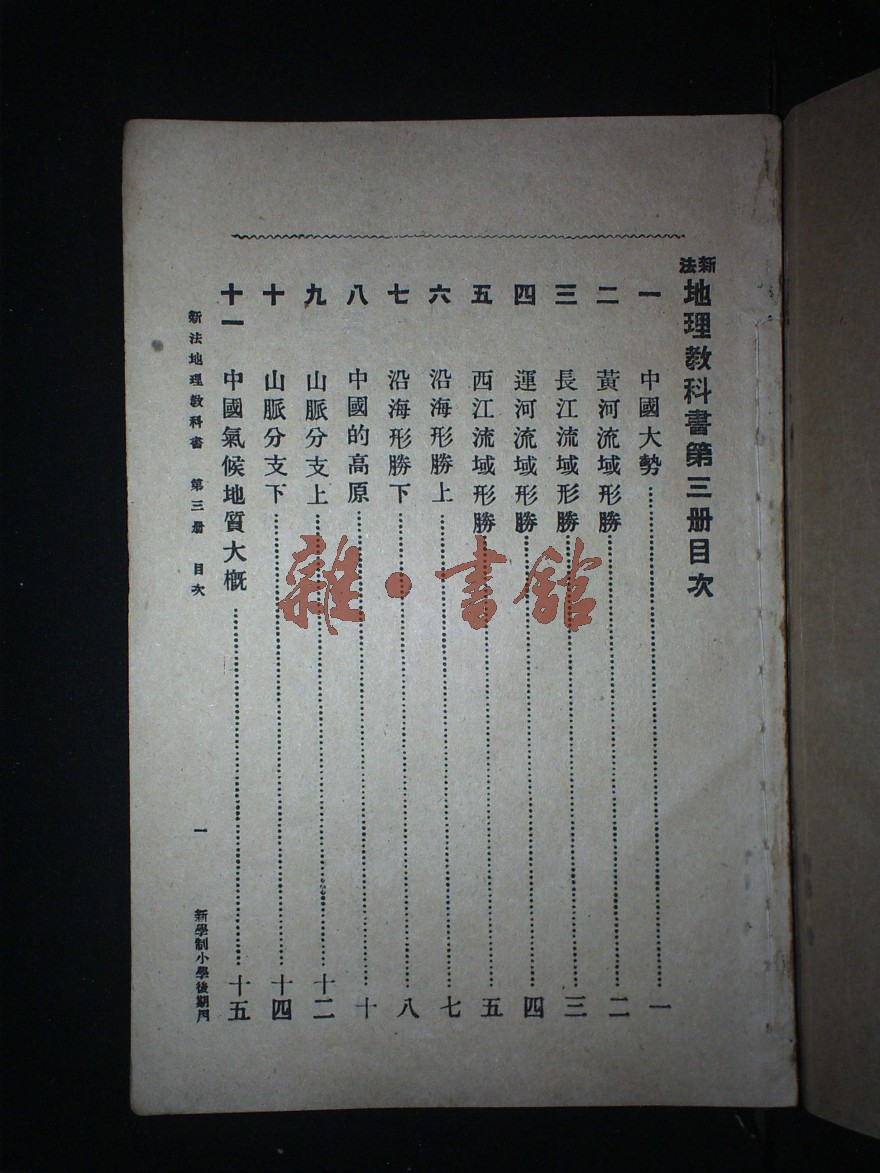 新法地理教科書第三册目次
一 中國大勢 一
二 黃河流域形勝 二
三 長江流域形勝 三
四 運河流域形勝 四
五 西江流域形勝 五
六 沿海形勝上 七
七 沿海形勝下 八
八 中國的高原 十
九 山脈分支上 十二
十 山脈分支下 十四
十一 中國氣候地質大概 十五
新法地理教科書 第三册 目次 一 新學制小學後期用
雜·書館